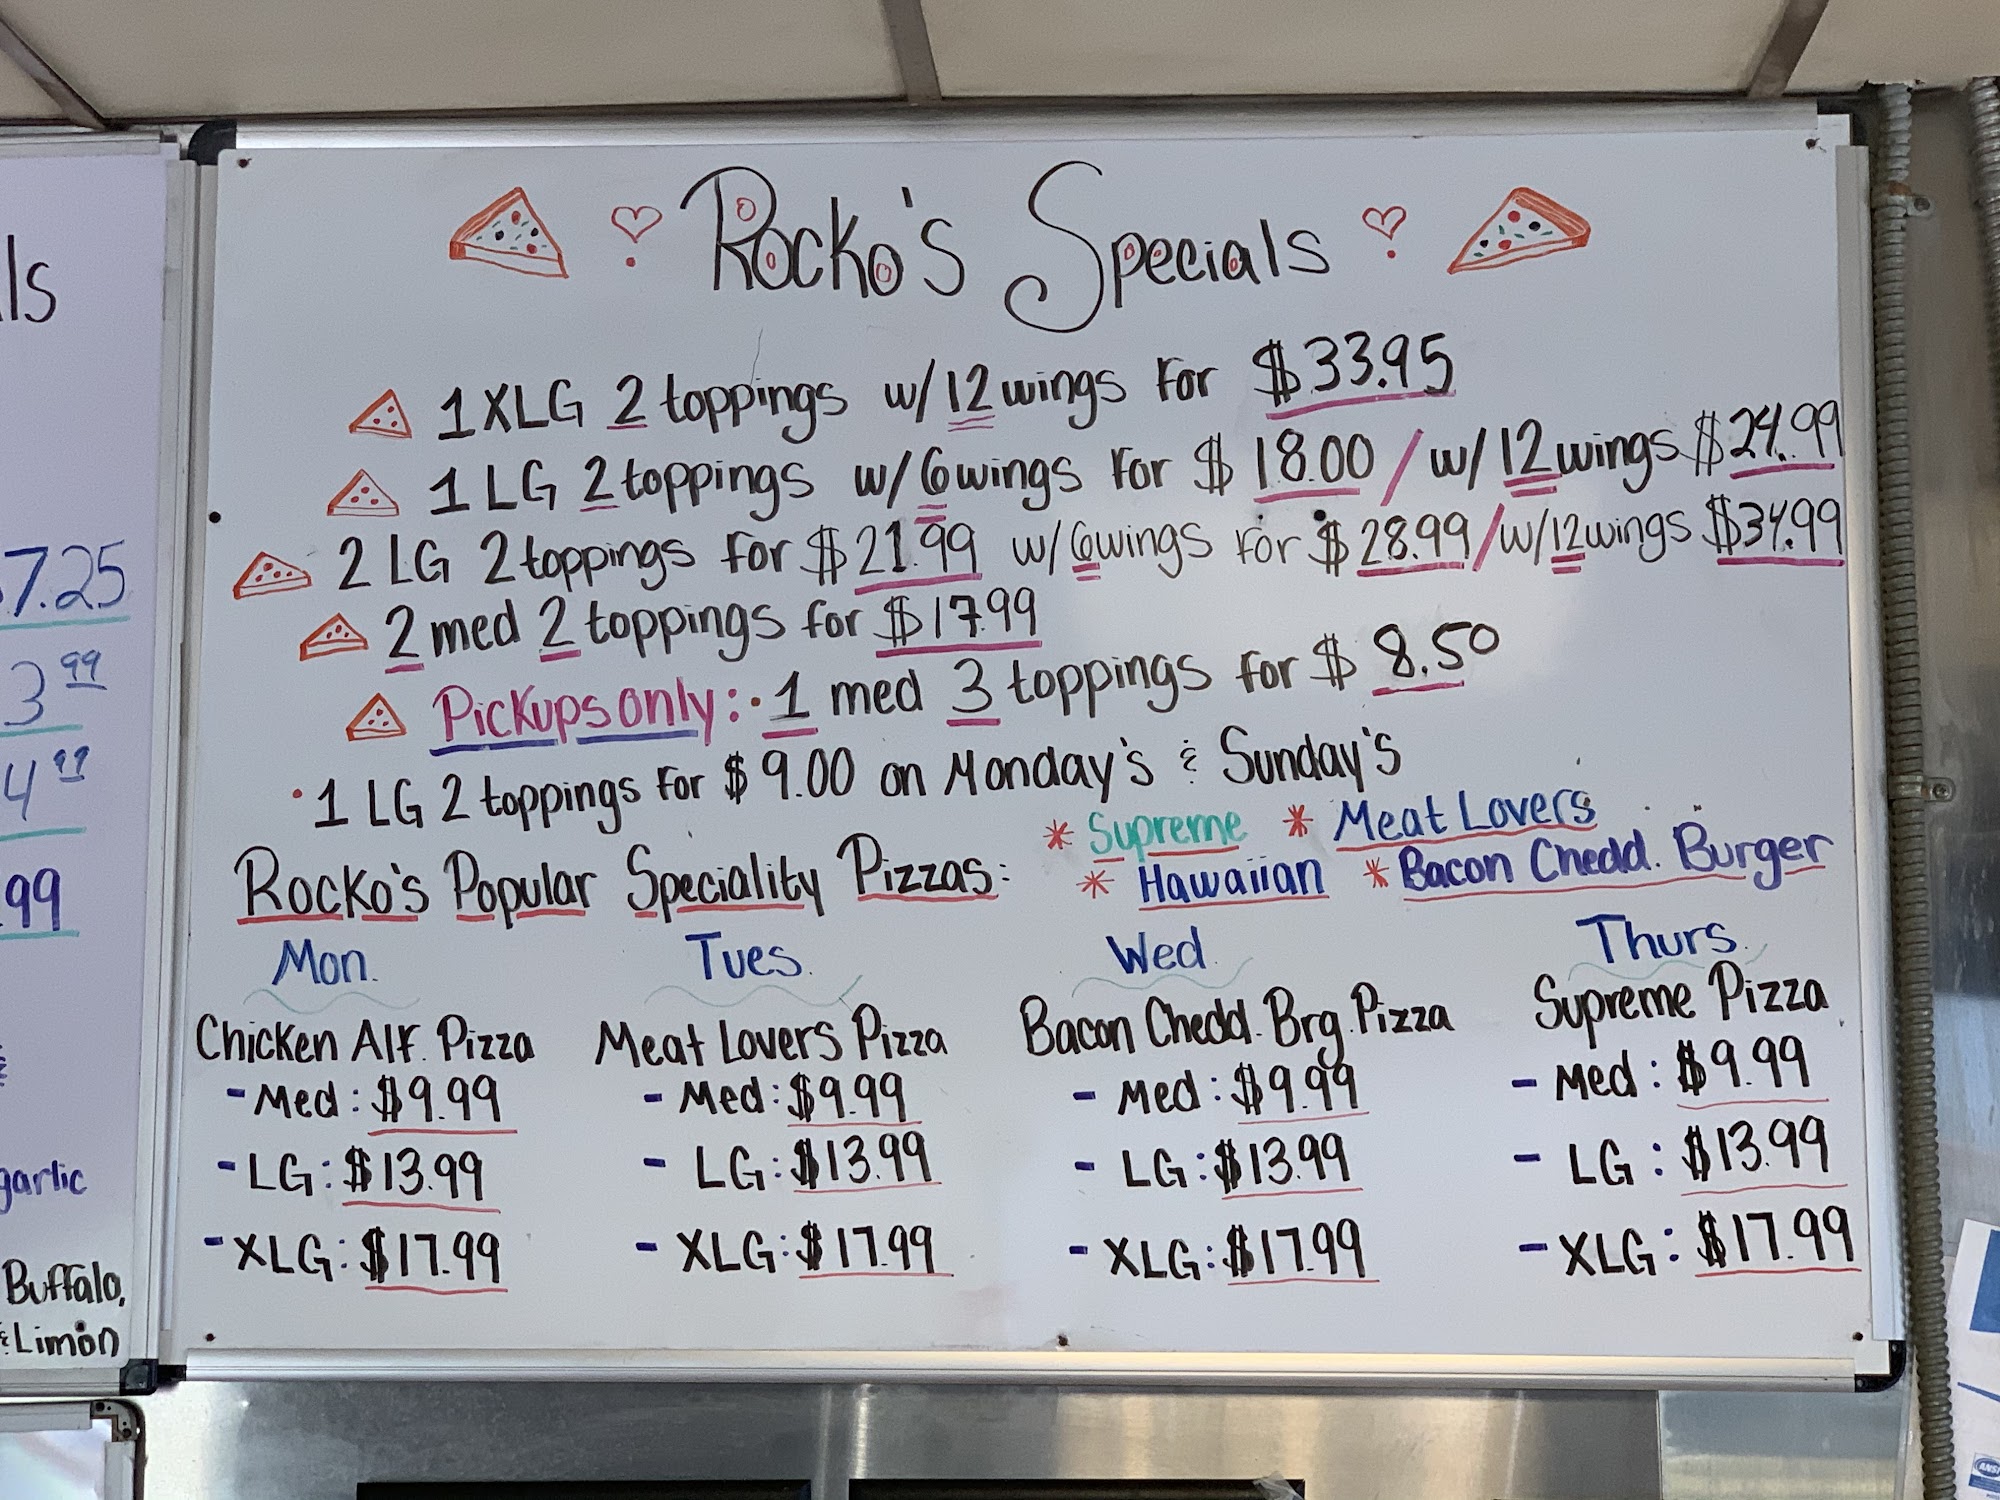 Rocko's Specials
1 XLG 2 toppings w/ 12 wings for $33.95
1 LG 2 toppings w/ 6 wings for $18.00 / w/ 12 wings $24.99
2 LG 2 toppings for $21.99 w/ 6 wings for $28.99 / w/ 12 wings $34.99
2 med 2 toppings for $17.99
Pickups only: · 1 med 3 toppings for $8.50
· 1 LG 2 toppings for $9.00 on Monday's & Sunday's
Rocko's Popular Speciality Pizzas:
* Supreme * Meat Lovers
* Hawaiian * Bacon Chedd. Burger
Mon.
Chicken Alf. Pizza
- Med: $9.99
- LG: $13.99
- XLG: $17.99
Tues.
Meat Lovers Pizza
- Med: $9.99
- LG: $13.99
- XLG: $17.99
Wed.
Bacon Chedd. Brg. Pizza
- Med: $9.99
- LG: $13.99
- XLG: $17.99
Thurs.
Supreme Pizza
- Med: $9.99
- LG: $13.99
- XLG: $17.99
ls
7.25
3 99
4 99
.99
garlic
Buffalo,
& Limón
ANSI